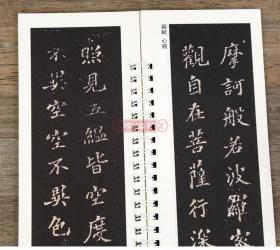 摩訶般若波羅
觀自在菩薩行深
照見五蘊皆空度
不異空空不異色